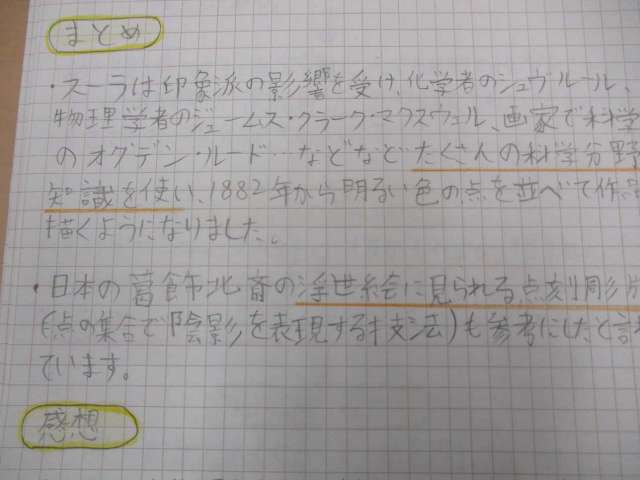 まとめ
・スーラは印象派の影響を受け、化学者のシュヴルール、
物理学者のジェームス・クラーク・マクスウェル、画家で科学
のオグデン・ルード…などなどたくさんの科学分野
知識を使い、1882年から明るい色の点を並べて作品
描くようになりました。
・日本の葛飾北斎の浮世絵に見られる点刻彫
(点の集合で陰影を表現する技法)も参考にしたと
ています。
感想